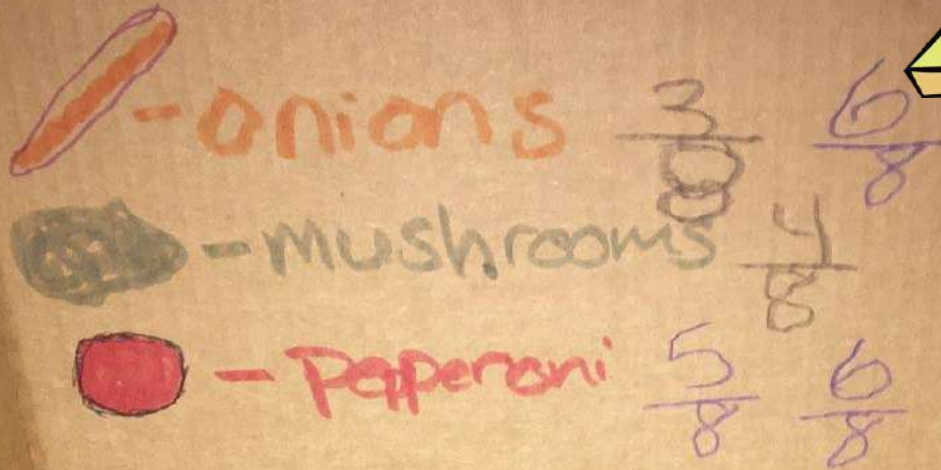 -onions 3/8 6/8
-mushrooms 4/8
-Pepperoni 5/8 6/8